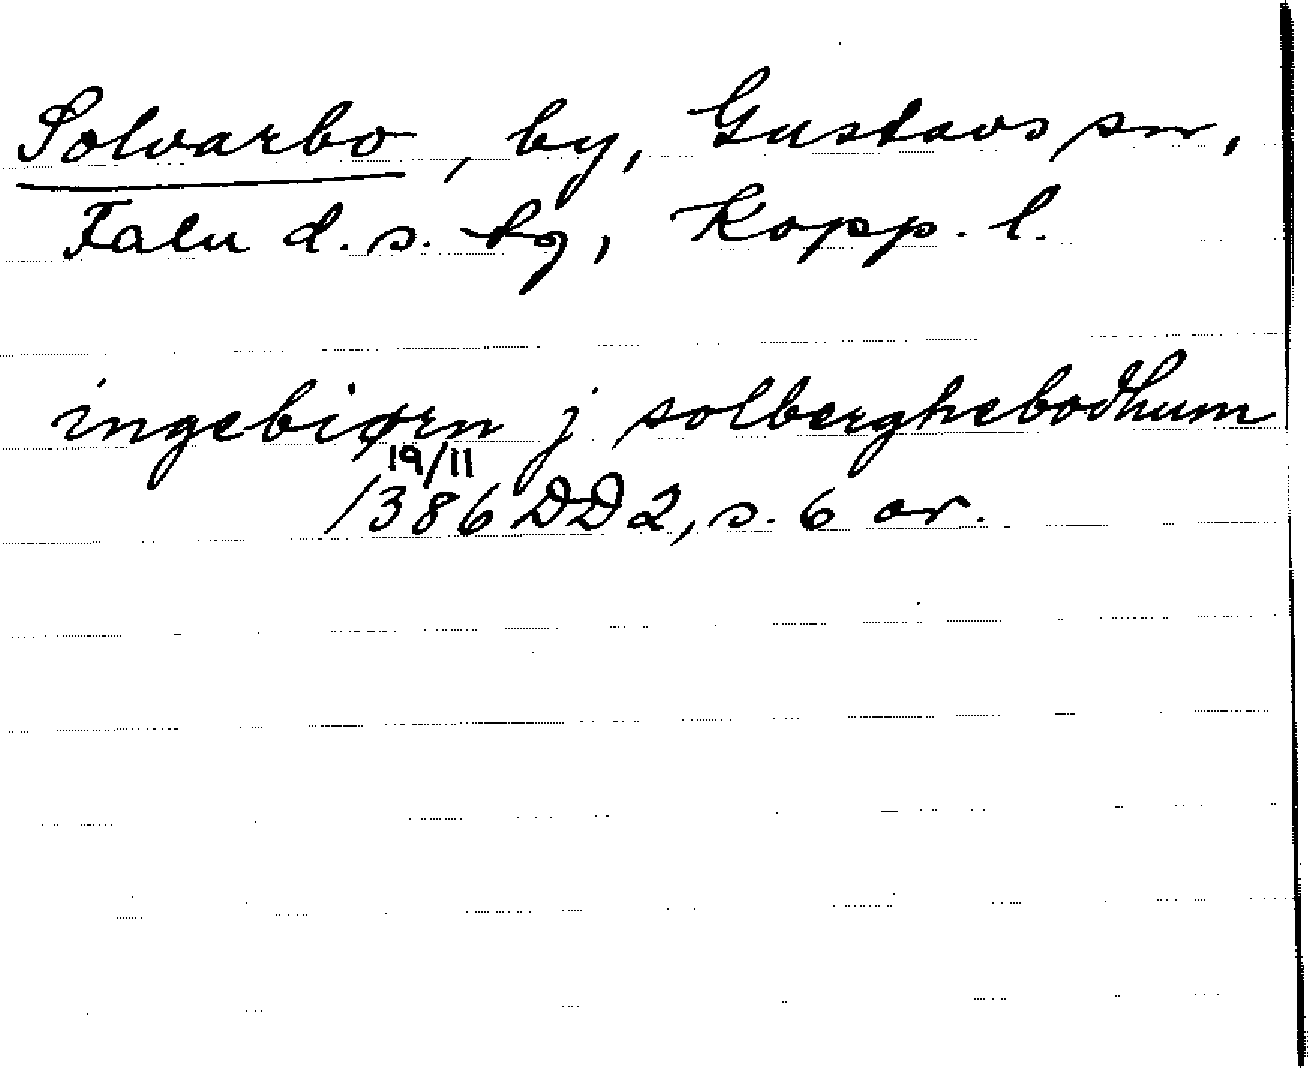 Solvarbo, by, Gustavs sn,
Falu d. s. tg, Kopp. l.
ingebiørn j solberghebodhum
19/11
1386 DD 2, s. 6 or.